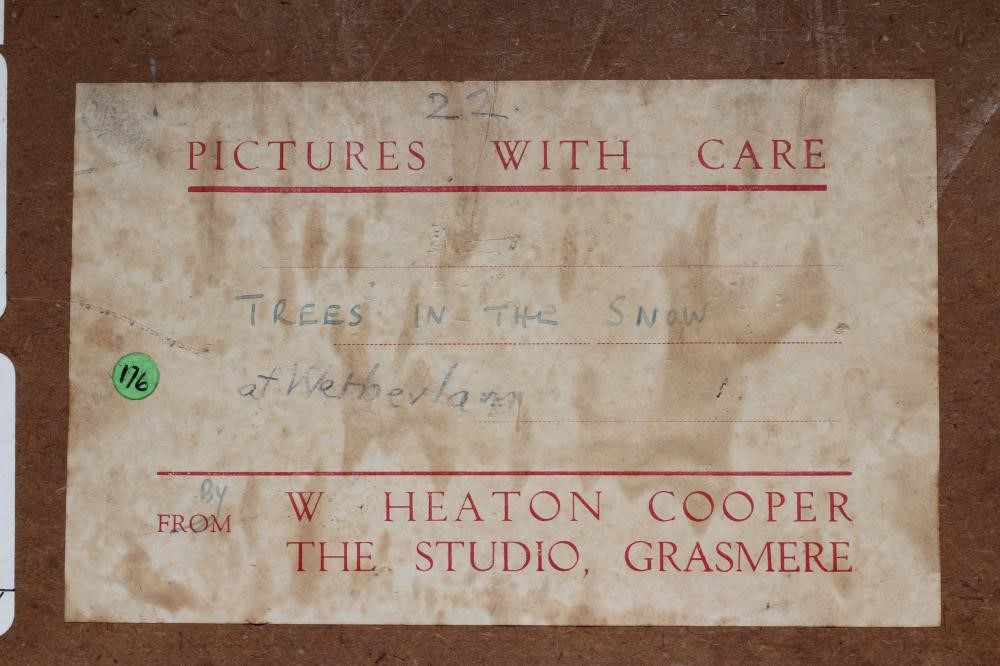 22.
PICTURES WITH CARE
TREES IN THE SNOW
176
at Wetherlam
BY
FROM W HEATON COOPER
THE STUDIO, GRASMERE